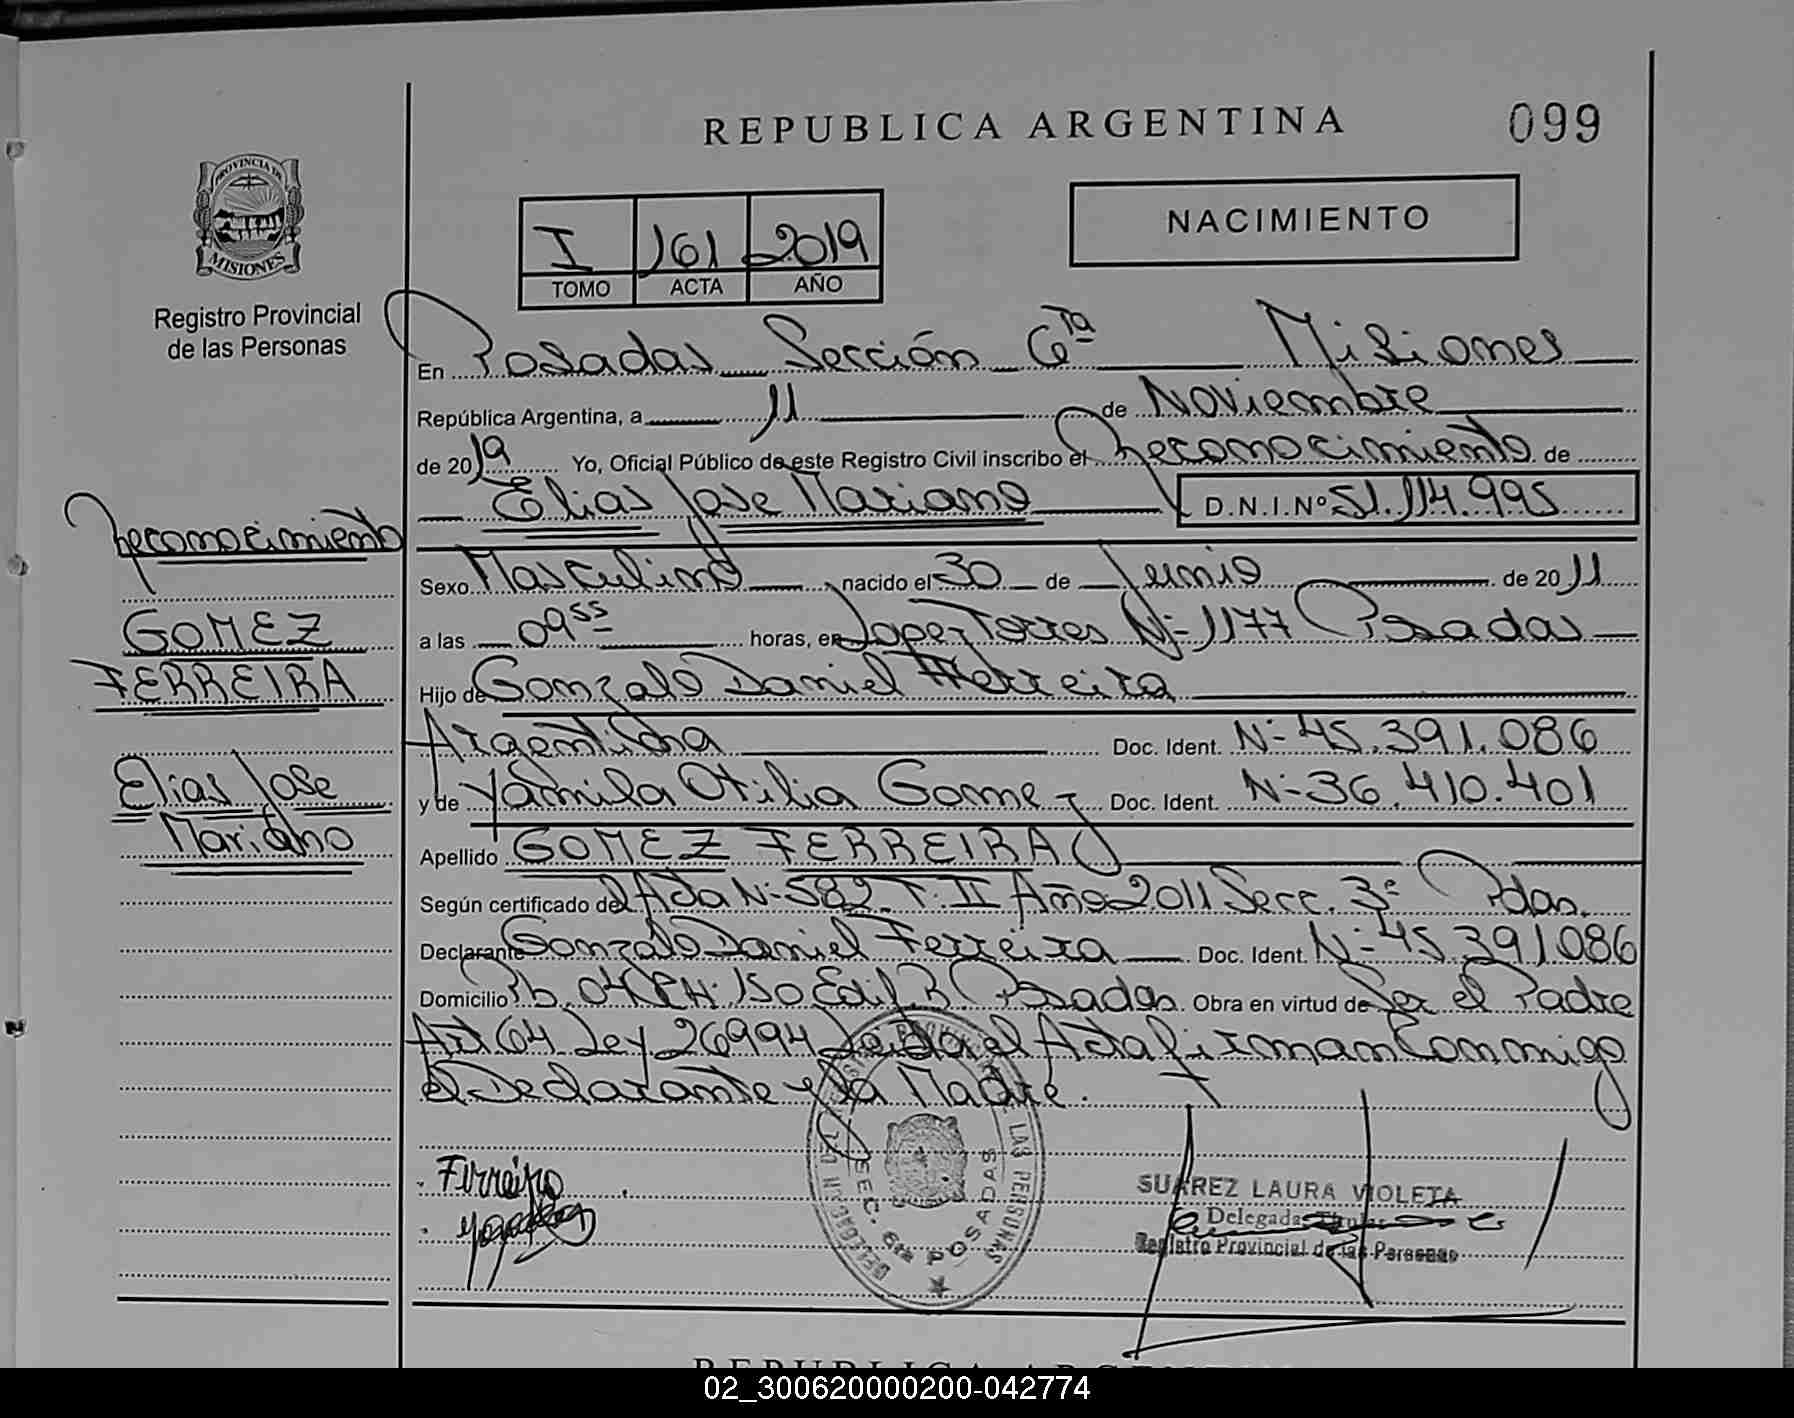 REPUBLICA ARGENTINA
099
PROVINCIA DE
MISIONES
Registro Provincial
de las Personas
I 161 2019
TOMO ACTA AÑO
NACIMIENTO
En Posadas Sección 6ta Misiones
República Argentina, a 11 de Noviembre
de 2019 Yo, Oficial Público de este Registro Civil inscribo el Reconocimiento de
Elias Jose Mariano D.N.I.Nº 51.114.995
Sexo Masculino, nacido el 30 de Junio de 2011
a las 09 55 horas, en Lopez Torres Nº 1177 Posadas
Hijo de Gonzalo Daniel Ferreira
Argentina Doc. Ident. Nº 45.391.086
y de Yamila Otilia Gomez Doc. Ident. Nº 36.410.401
Apellido GOMEZ FERREIRA
Según certificado del Acta Nº 582 T. II Año 2011 Secc. 3ª Pdas.
Declarante Gonzalo Daniel Ferreira Doc. Ident. Nº 45.391.086
Domicilio Bº 04 CH. 150 Edif. B Posadas. Obra en virtud de Ser el Padre
Art 64 Ley 26994 Leida el Acta firman Conmigo
el Declarante y la Madre.
Reconocimiento
GOMEZ
FERREIRA
Elias Jose
Mariano
Ferreira
SEC. 6ta POSADAS
SUAREZ LAURA VIOLETA
Delegada Titular
Registro Provincial de las Personas
02_300620000200-042774